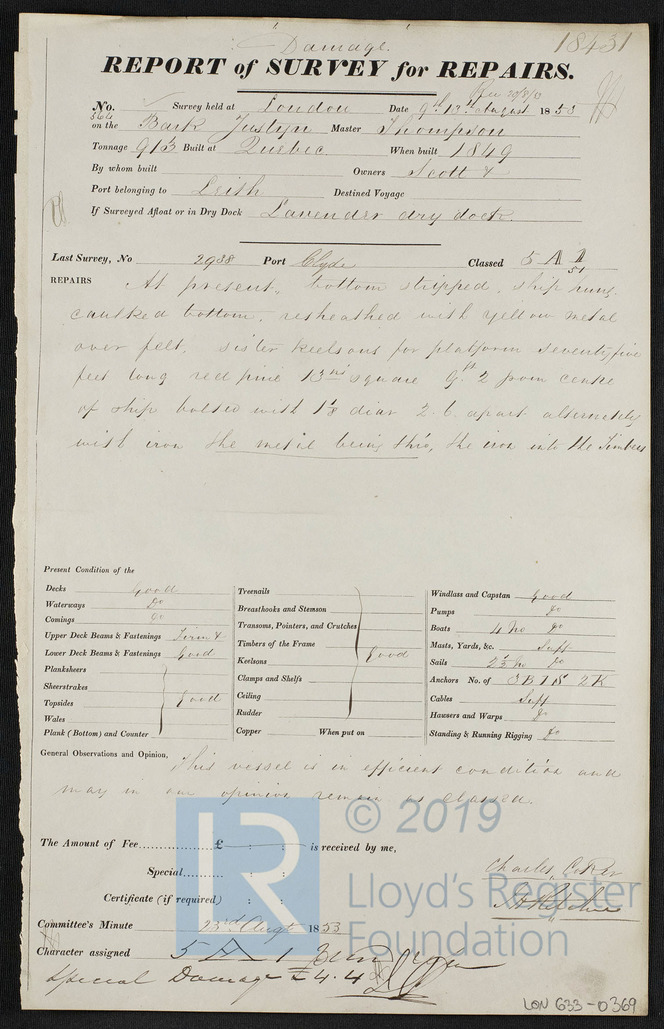 Damage.
18431
REPORT of SURVEY for REPAIRS.
No. 566 Survey held at London Date 9th 13th August 1853
on the Bark Master Thompson
Tonnage 913 Built at Quebec. When built 1849
By whom built Owners Scott &
Port belonging to Leith Destined Voyage
If Surveyed Afloat or in Dry Dock Lavender dry dock.
Last Survey, No 2938 Port Clyde Classed 5 A 1
51
REPAIRS At present, bottom stripped, ship
caulked bottom, resheathed with yellow metal
over felt, sister keelsons for platform seventyfive
feet long red pine 13 ins square 2 from centre
of ship bolted with 1 1/8 diar 2.6. apart alternately
with iron the metal being thro, the iron into the Timbers
Present Condition of the
Decks Good
Waterways Do
Comings Do
Upper Deck Beams & Fastenings Firm &
Lower Deck Beams & Fastenings Good
Planksheers
Sheerstrakes
Topsides Good
Wales
Plank (Bottom) and Counter
Treenails
Breasthooks and Stemson
Transoms, Pointers, and Crutches
Timbers of the Frame
Keelsons Good
Clamps and Shelfs
Ceiling
Rudder
Copper When put on
Windlass and Capstan Good
Pumps Do
Boats 4 No Do
Masts, Yards, &c. Suff
Sails Do
Anchors No. of 3B 1S 2K
Cables Suff
Hawsers and Warps Do
Standing & Running Rigging Do
General Observations and Opinion, This vessel is in efficient condition and
may in our opinion remain as classed.
The Amount of Fee £ : : is received by me,
Special : :
Certificate (if required) : :
Charles
Committee's Minute 23rd Augt 1853
Character assigned 5 A 1
Special Damage £4.4
© 2019
LR
Lloyd's Register
Foundation
LON 633-0369